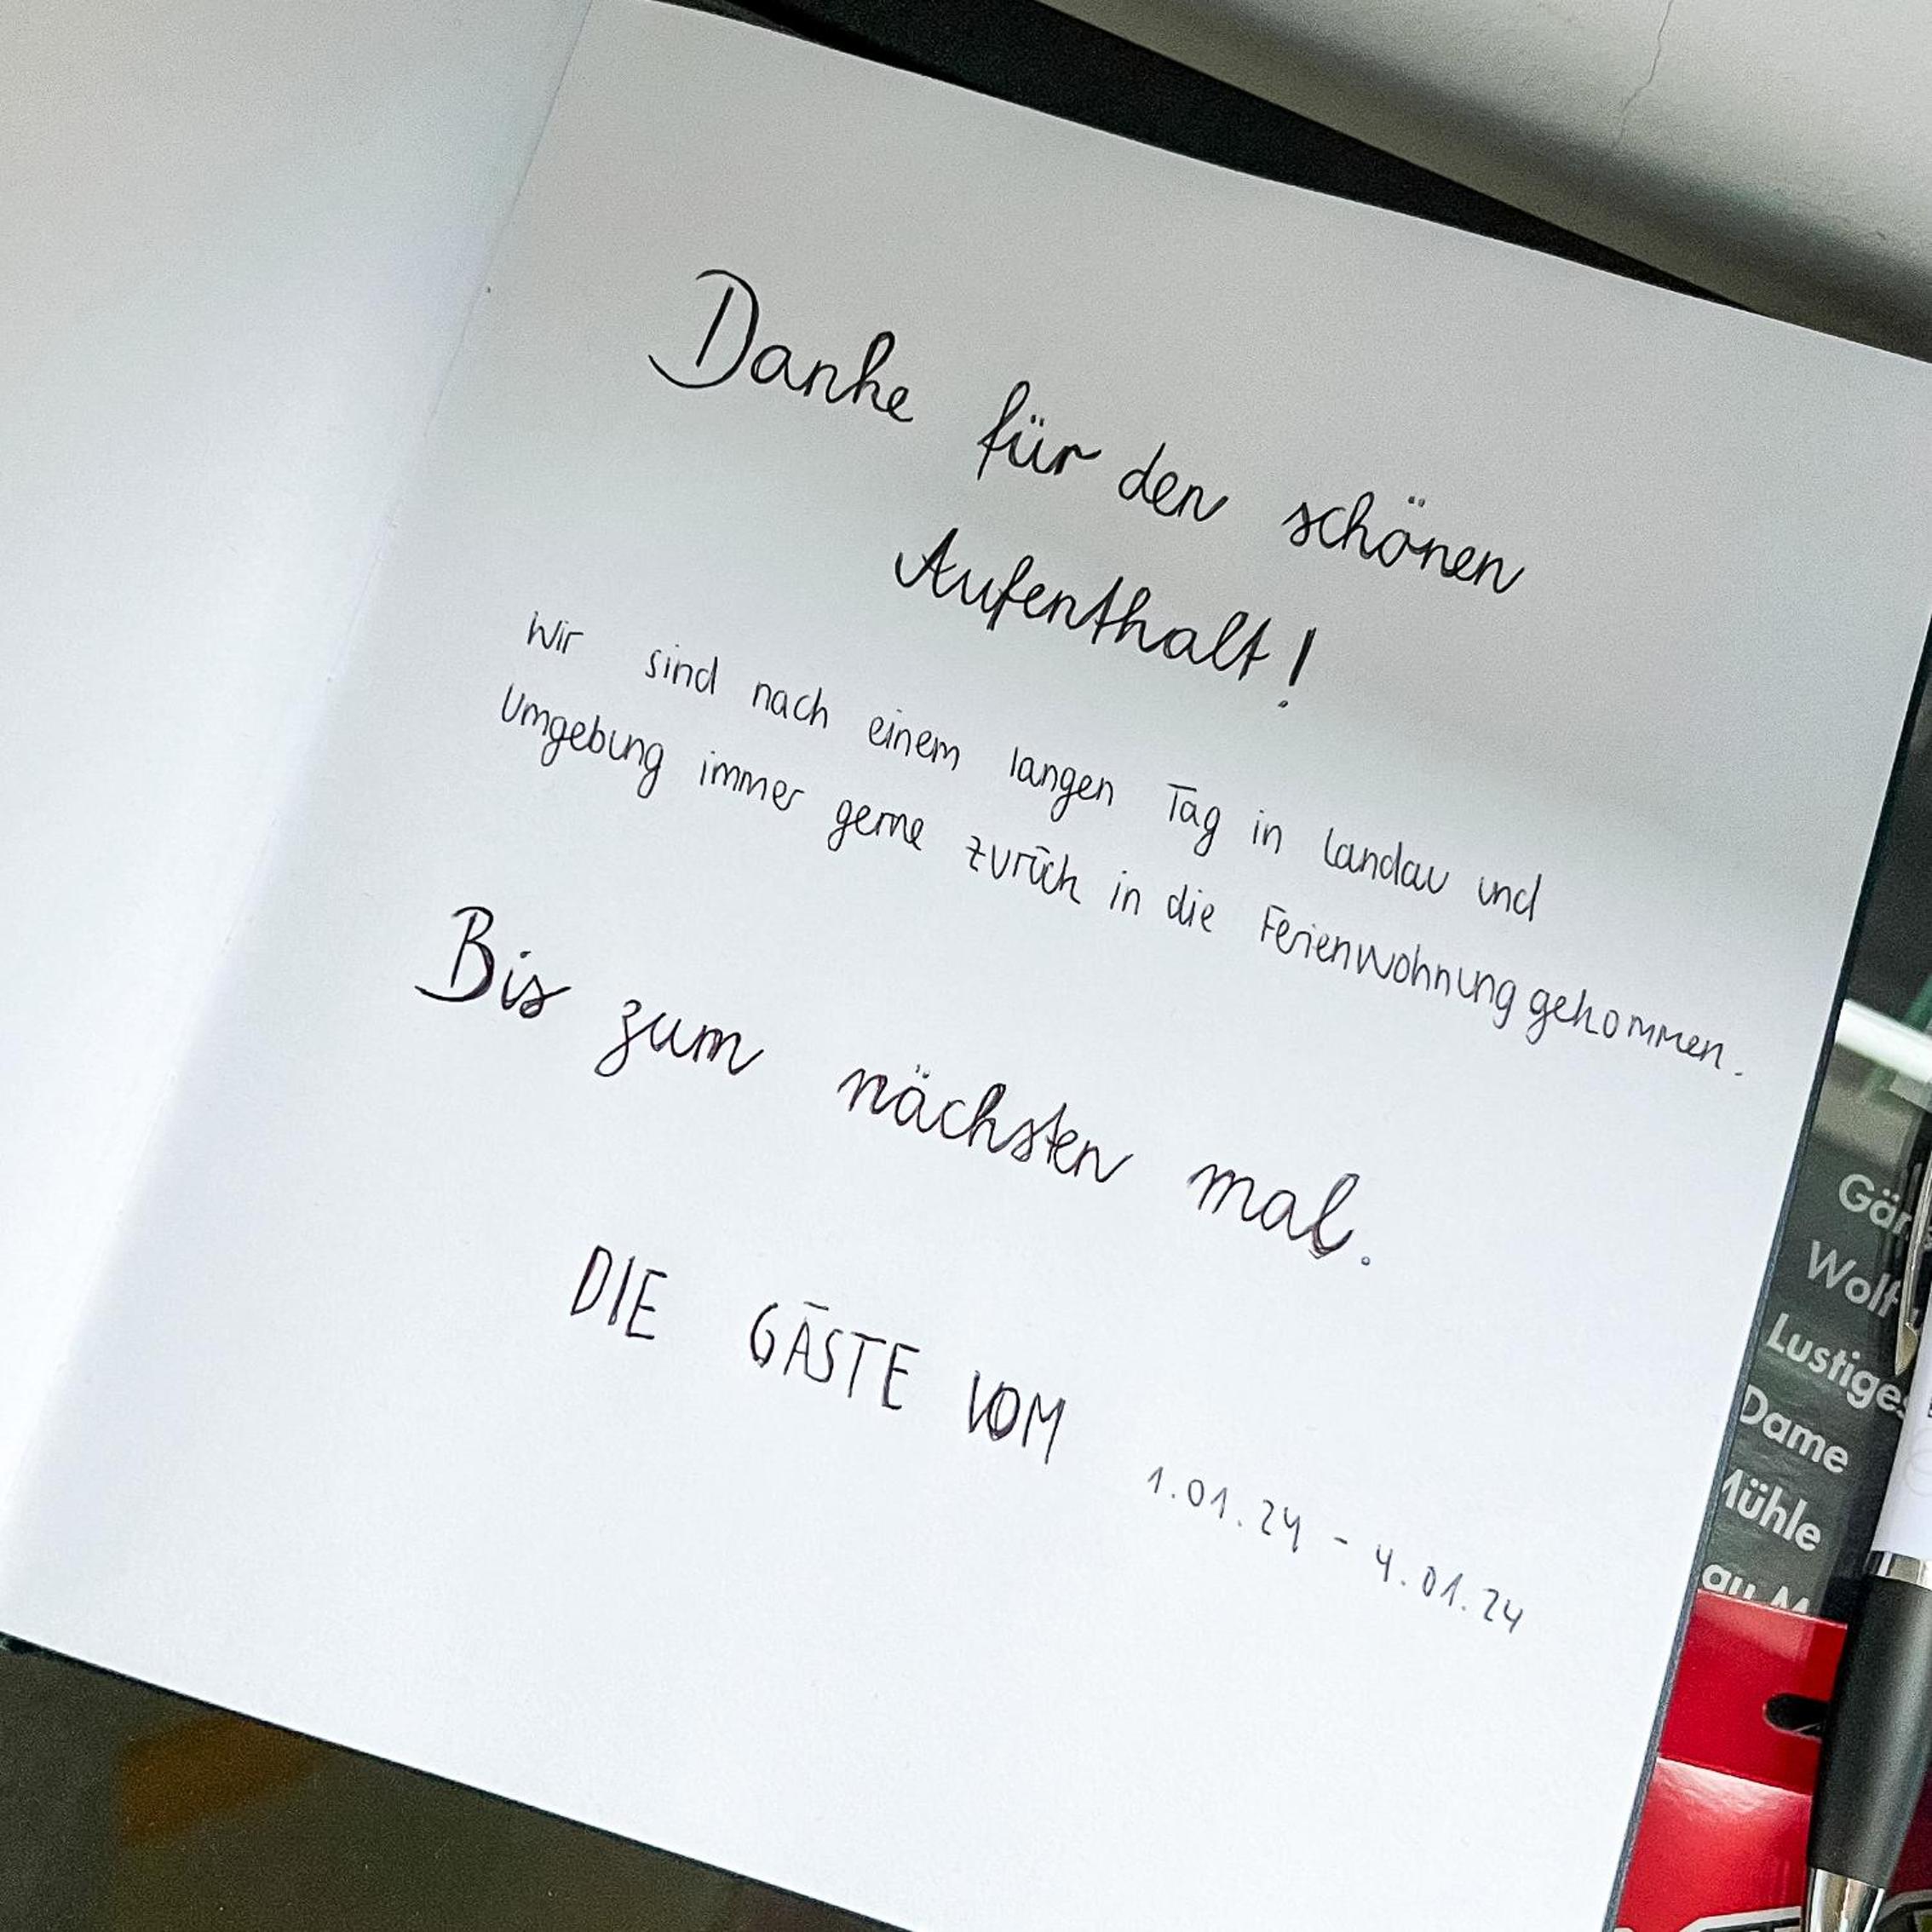 Danke für den schönen
Aufenthalt!
Wir sind nach einem langen Tag in Landau und
Umgebung immer gerne zurück in die Ferienwohnung gekommen.
Bis zum nächsten mal.
DIE GÄSTE VOM 1.01.24 - 4.01.24
Wolf
Lustiges
Dame